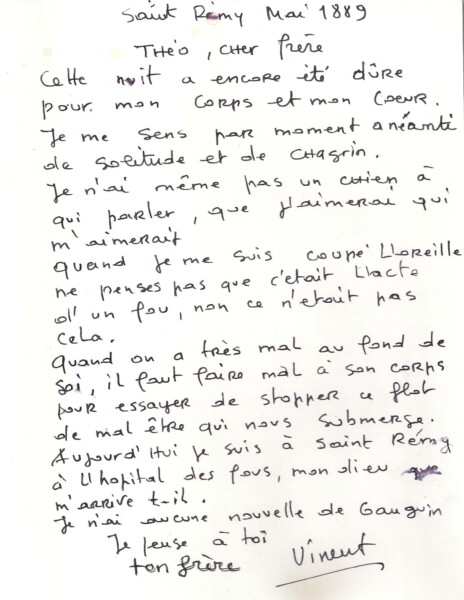 Saint Rémy Mai 1889
Théo, cher frère
Cette nuit a encore été dûre
pour mon corps et mon coeur.
Je me sens par moment anéanti
de solitude et de chagrin.
Je n'ai même pas un chien à
qui parler, que j'aimerai qui
m'aimerait
quand je me suis coupé l'oreille
ne penses pas que c'était l'acte
d'un fou, non ce n'etait pas
cela.
Quand on a très mal au fond de
soi, il faut faire mal à son corps
pour essayer de stopper ce flot
de mal être qui nous submerge.
Aujourd'hui je suis à Saint Rémy
à l'hopital des fous, mon dieu que
m'arrive t-il.
Je n'ai aucune nouvelle de Gauguin
Je pense à toi
ton frère Vincent